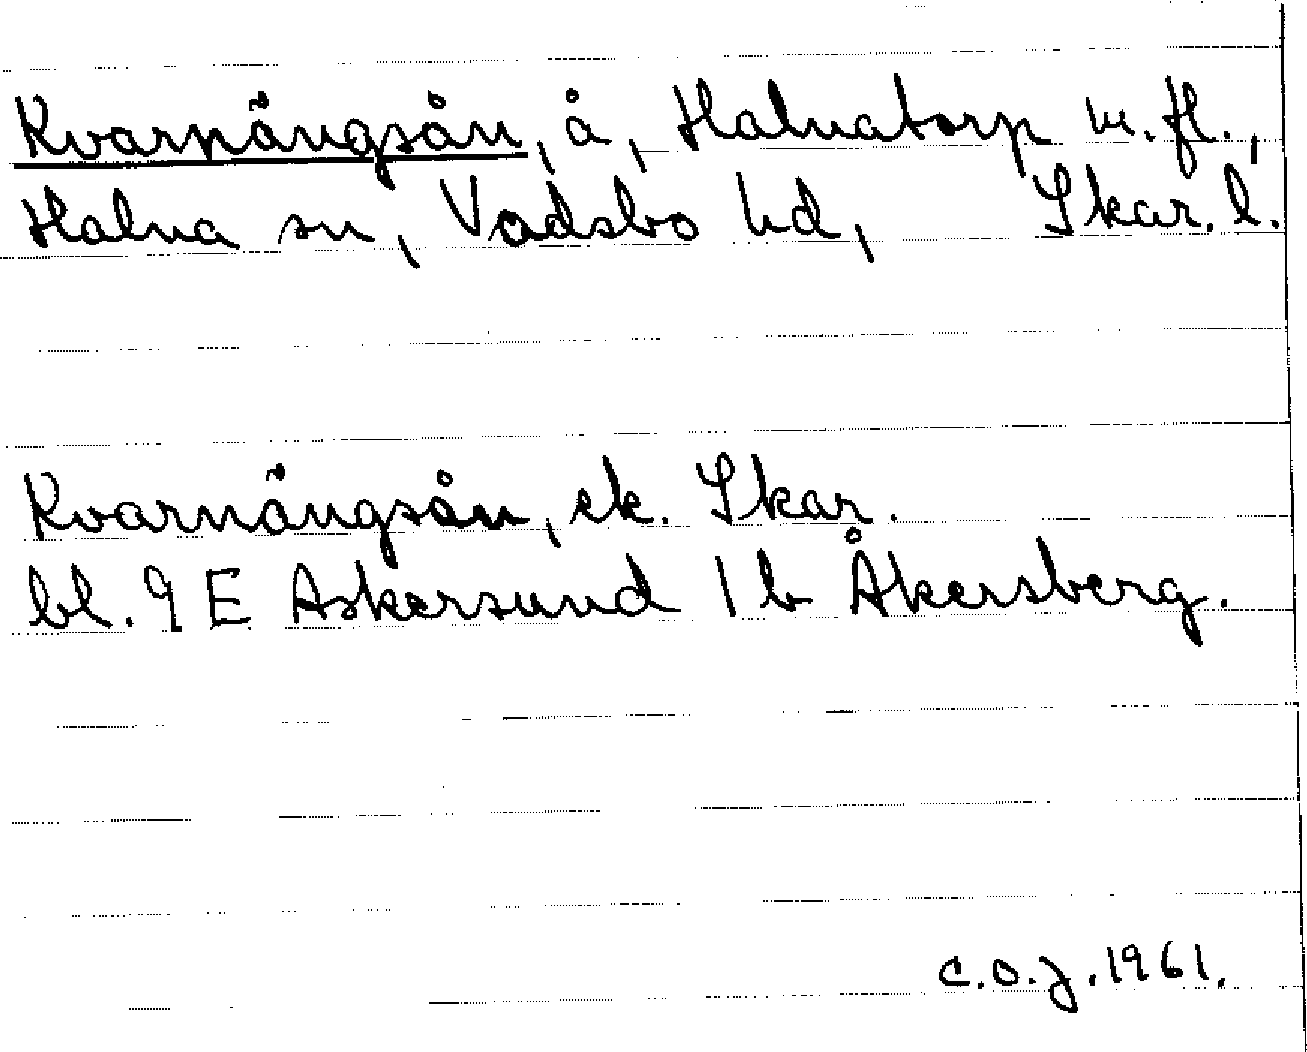 Kvarnängsån, å, Halnatorp m.fl.,
Halna sn, Vadsbo hd, Skar. l.
Kvarnängsån, ek. Skar.
bl. 9 E Askersund 1 b Åkersberg.
C.O.J. 1961.